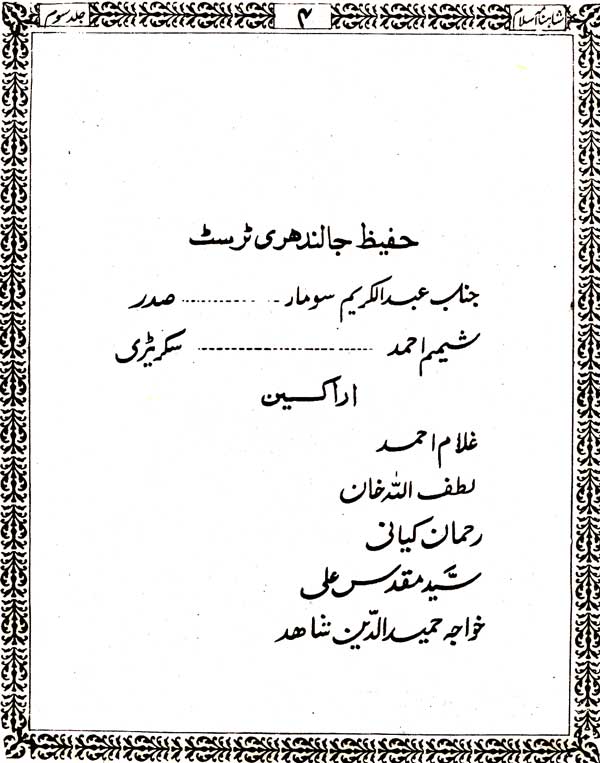 شاہنامۂ اسلام ۴ جلد سوم
حفیظ جالندھری ٹرسٹ
جناب عبدالکریم سومار ------------ صدر
شمیم احمد -------------------- سکریٹری
اراکین
غلام احمد
لطف اللہ خان
رحمان کیانی
سیّد مقدس علی
خواجہ حمیدالدّین شاھد